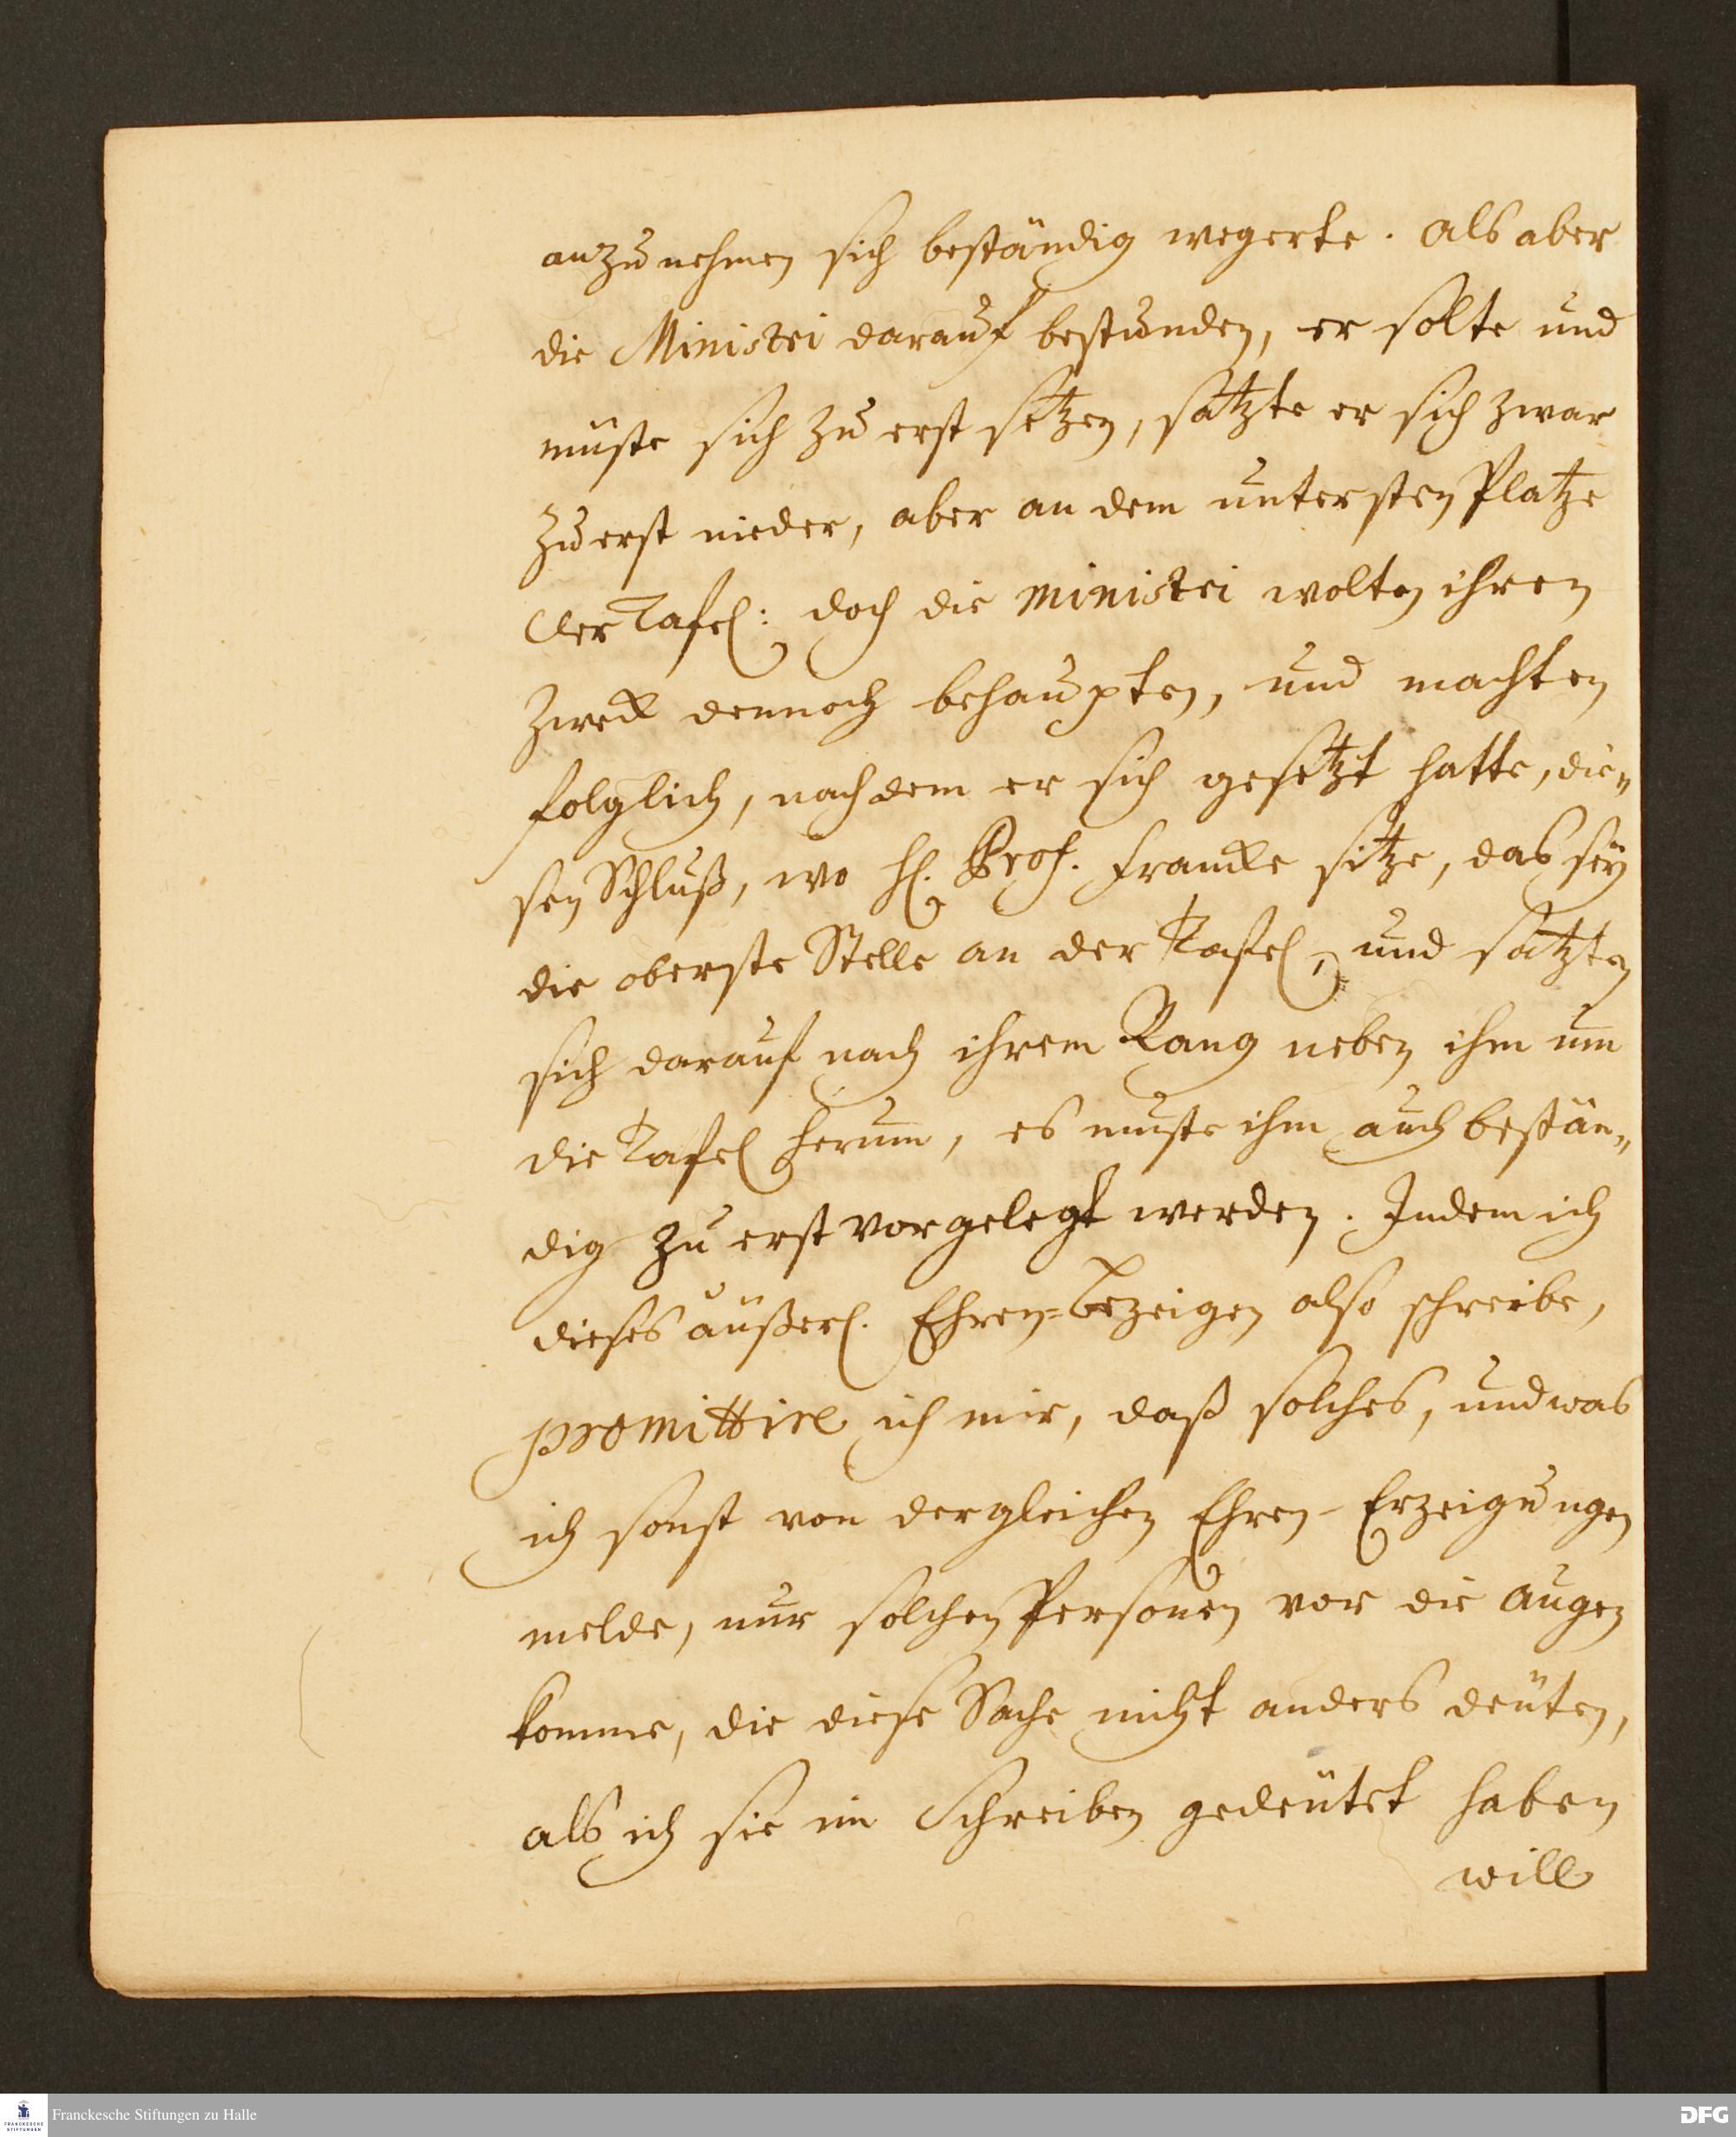 anzunehmen sich beständig wegerte. Als aber
die Ministri darauf bestunden, er solte und
müste sich zu erst setzen, satzte er sich zwar
zu erst nieder, aber an dem untersten Platze
der Tafel: doch die ministri wolten ihren
Zweck dennoch behaupten, und machten
folglich, nachdem er sich gesetzt hatte, die„
sen Schluß, wo H. Prof. Francke sitze, das sey
die oberste Stelle an der Tafel, und satzten
sich darauf nach ihrem Rang neben ihm um
die Tafel herum, es muste ihm auch bestän„
dig zu erst vorgelegt werden. Indem ich
dieses äußerl. Ehren=Bezeigen also schreibe,
promittire ich mir, daß solches, und was
ich sonst von dergleichen Ehren-Erzeigungen
melde, nur solchen Personen vor die Augen
komme, die diese Sache nicht anders deuten,
als ich sie im Schreiben gedeutet haben
will
Franckesche Stiftungen zu Halle
FRANCKESCHE STIFTUNGEN
DFG